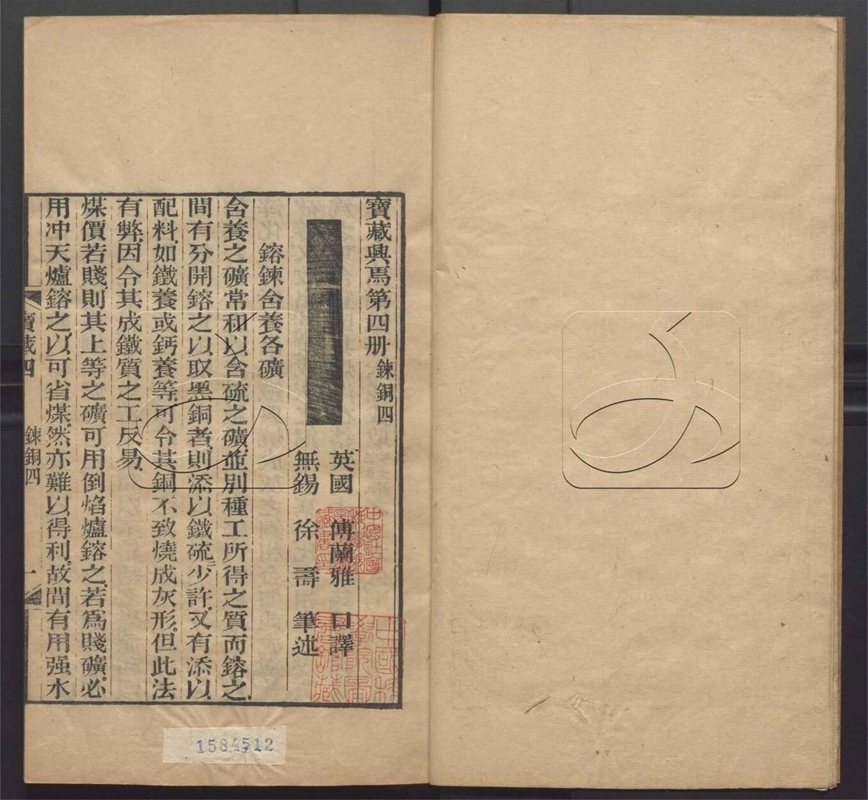 寶藏興焉第四册 鍊銅四
英國 傅蘭雅 口譯
無錫 徐壽 筆述
鎔鍊含養各礦
含養之礦常和以含硫之礦並別種工所得之質而鎔之
間有分開鎔之以取黑銅者則添以鐵硫少許又有添以
配料如鐵養或鈣養等可令其銅不致燒成灰形但此法
有弊因令其成鐵質之工反易
煤價若賤則其上等之礦可用倒焰爐鎔之若爲賤礦必
用冲天爐鎔之以可省煤然亦難以得利故間有用强水
寶藏四 鍊銅四 一
1584512